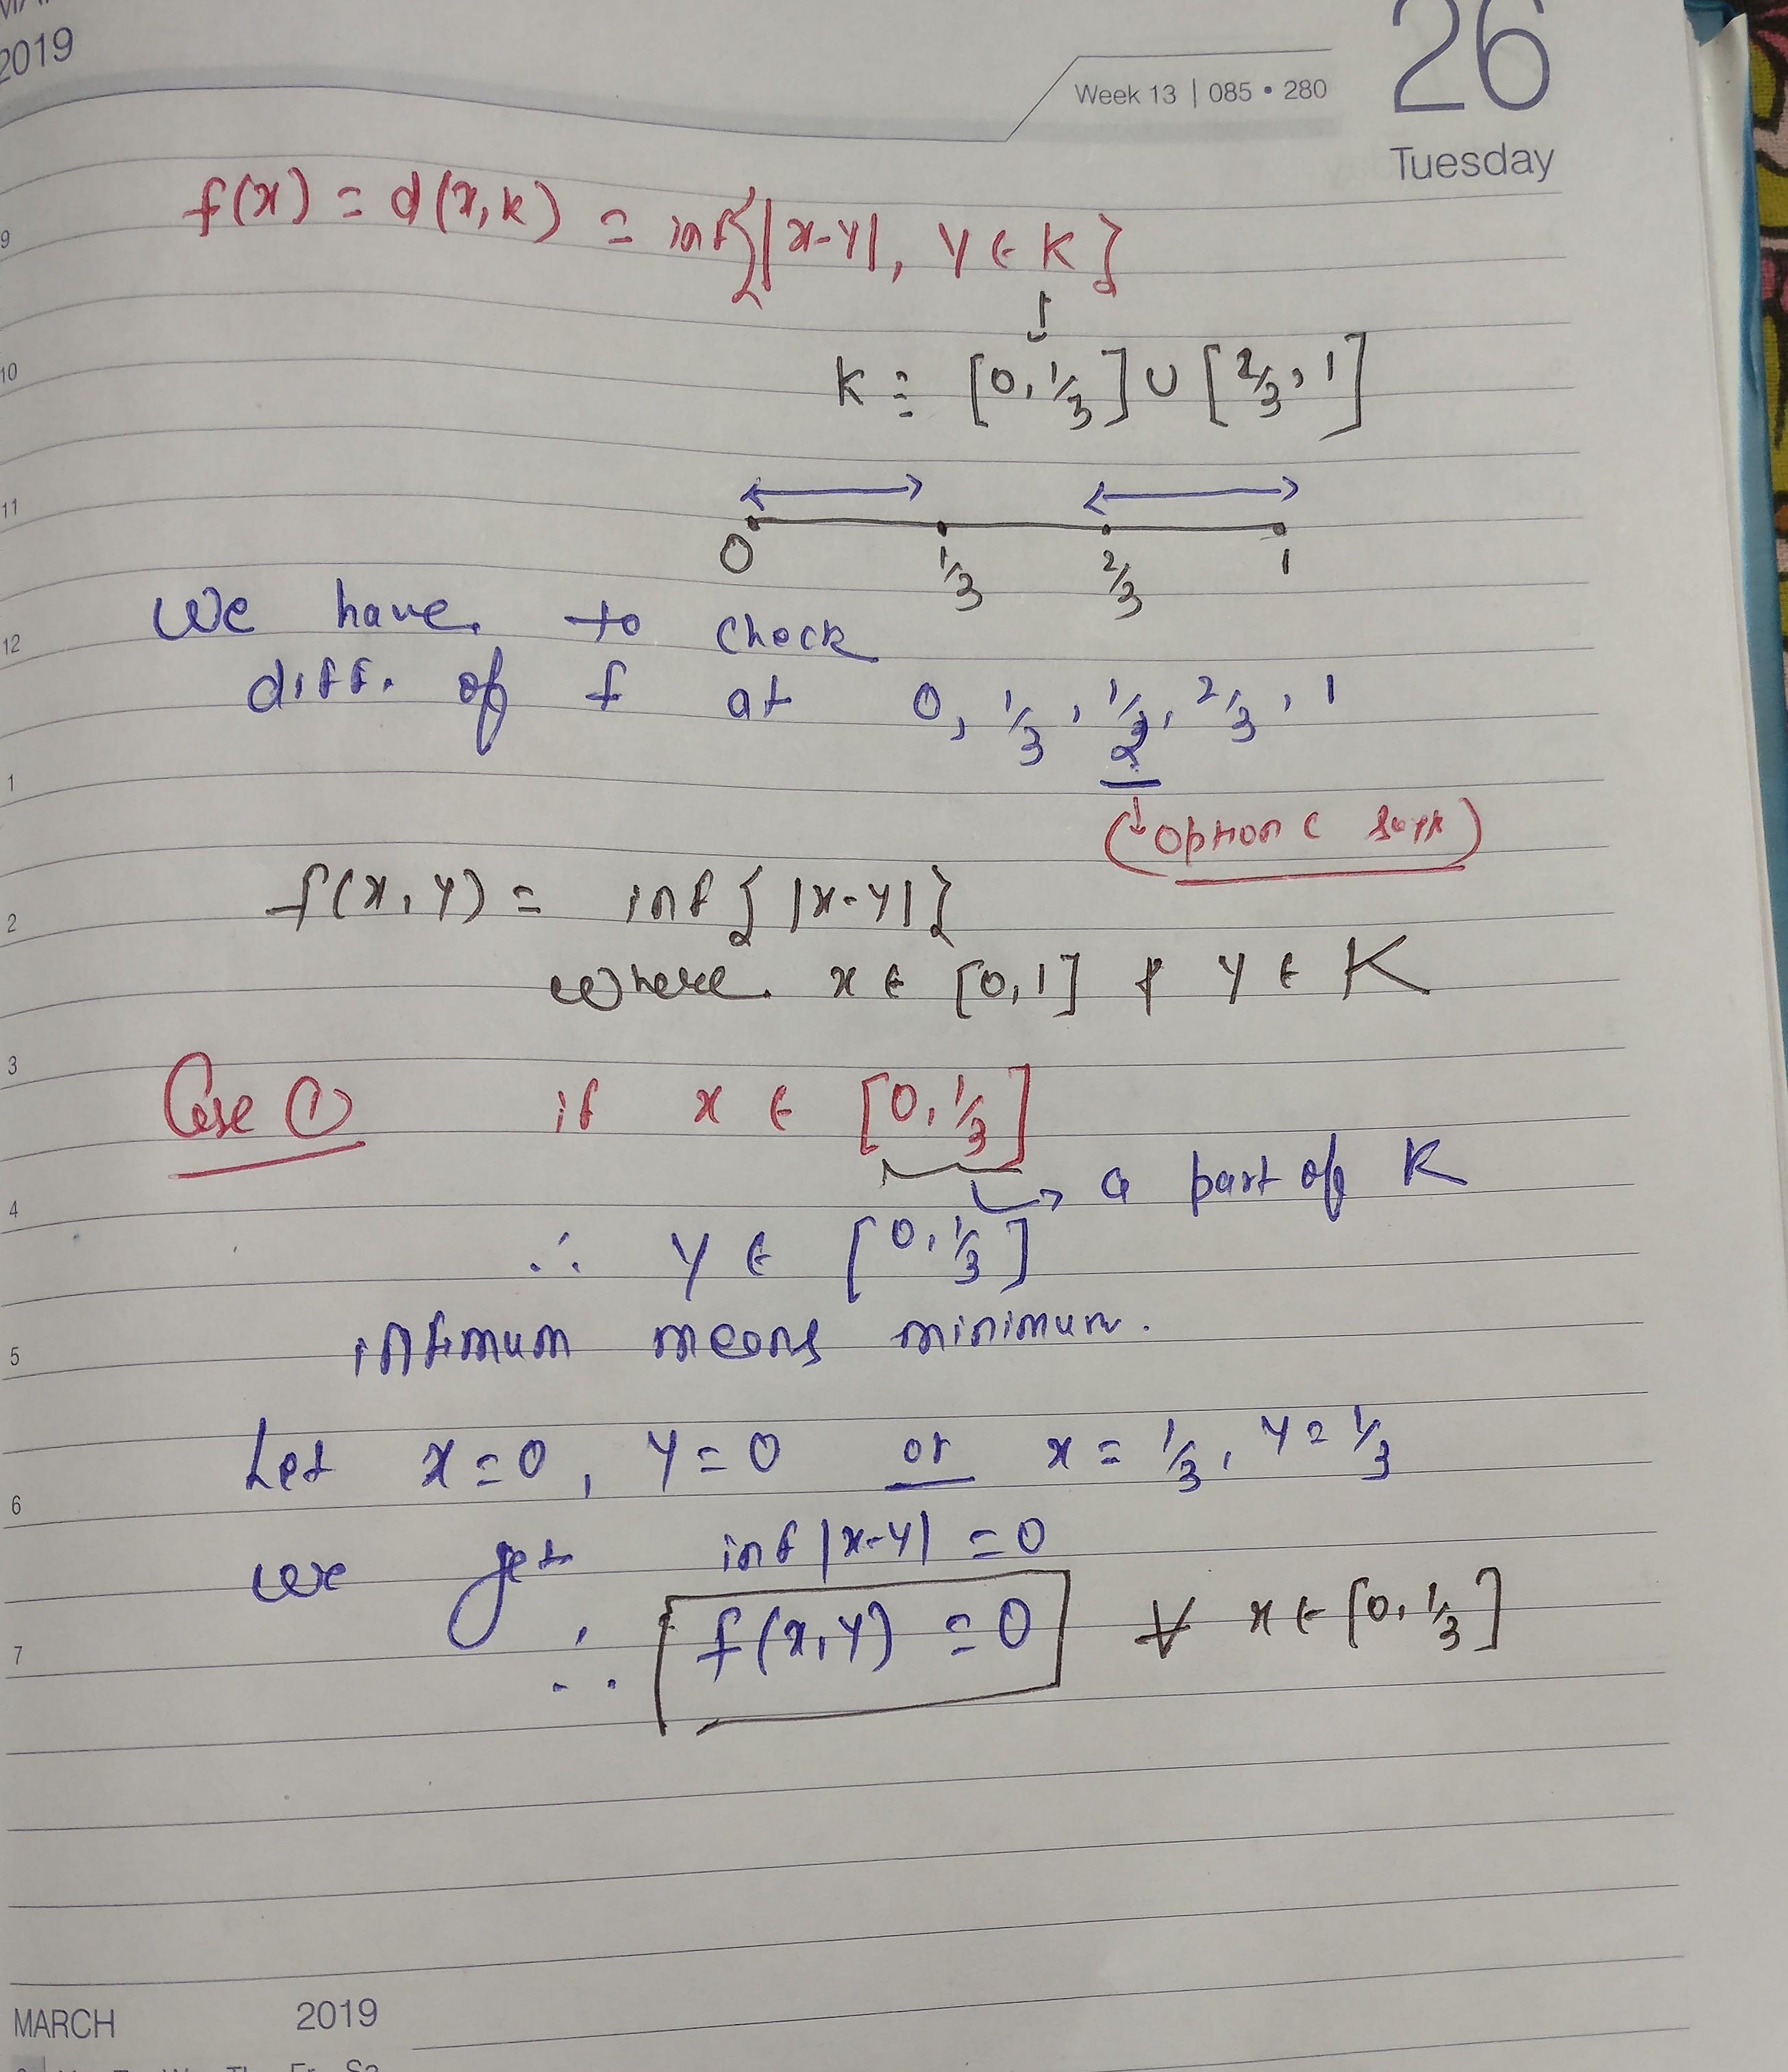 2019
Week 13 | 085 • 280
26
Tuesday
f(x) = d(x, k) = inf{|x-y|, y ∈ K}
K = [0, 1/3] ∪ [2/3, 1]
0 1/3 2/3 1
We have to check
diff. of f at 0, 1/3, 1/2, 2/3, 1
(option C
f(x, y) = inf{|x-y|}
where x ∈ [0, 1] & y ∈ K
Case ① if x ∈ [0, 1/3]
a part of K
∴ y ∈ [0, 1/3]
infimum means minimum.
Let x=0, y=0 or x = 1/3, y = 1/3
we get inf |x-y| = 0
∴ f(x, y) = 0 ∀ x ∈ [0, 1/3]
9
10
11
12
1
2
3
4
5
6
7
MARCH 2019